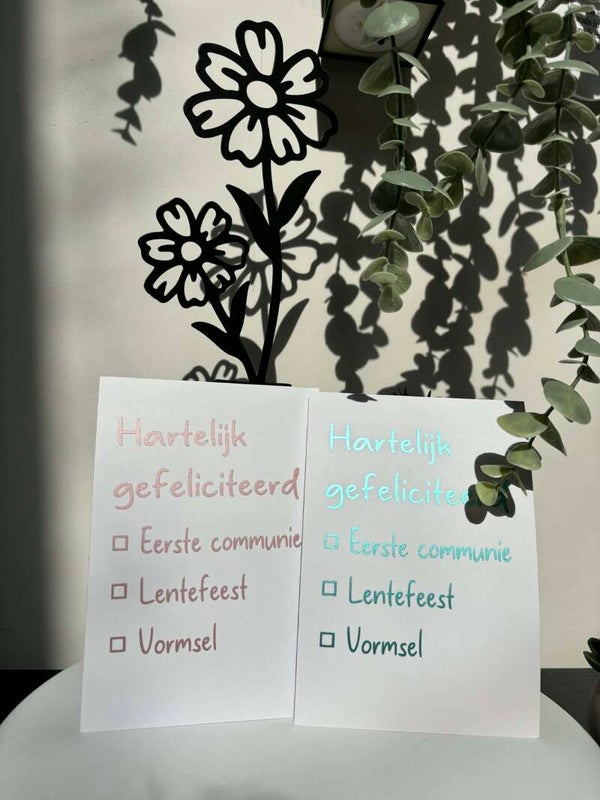 Hartelijk
gefeliciteerd
Eerste communie
Lentefeest
Vormsel
Hartelijk
gefelicitee
Eerste communie
Lentefeest
Vormsel